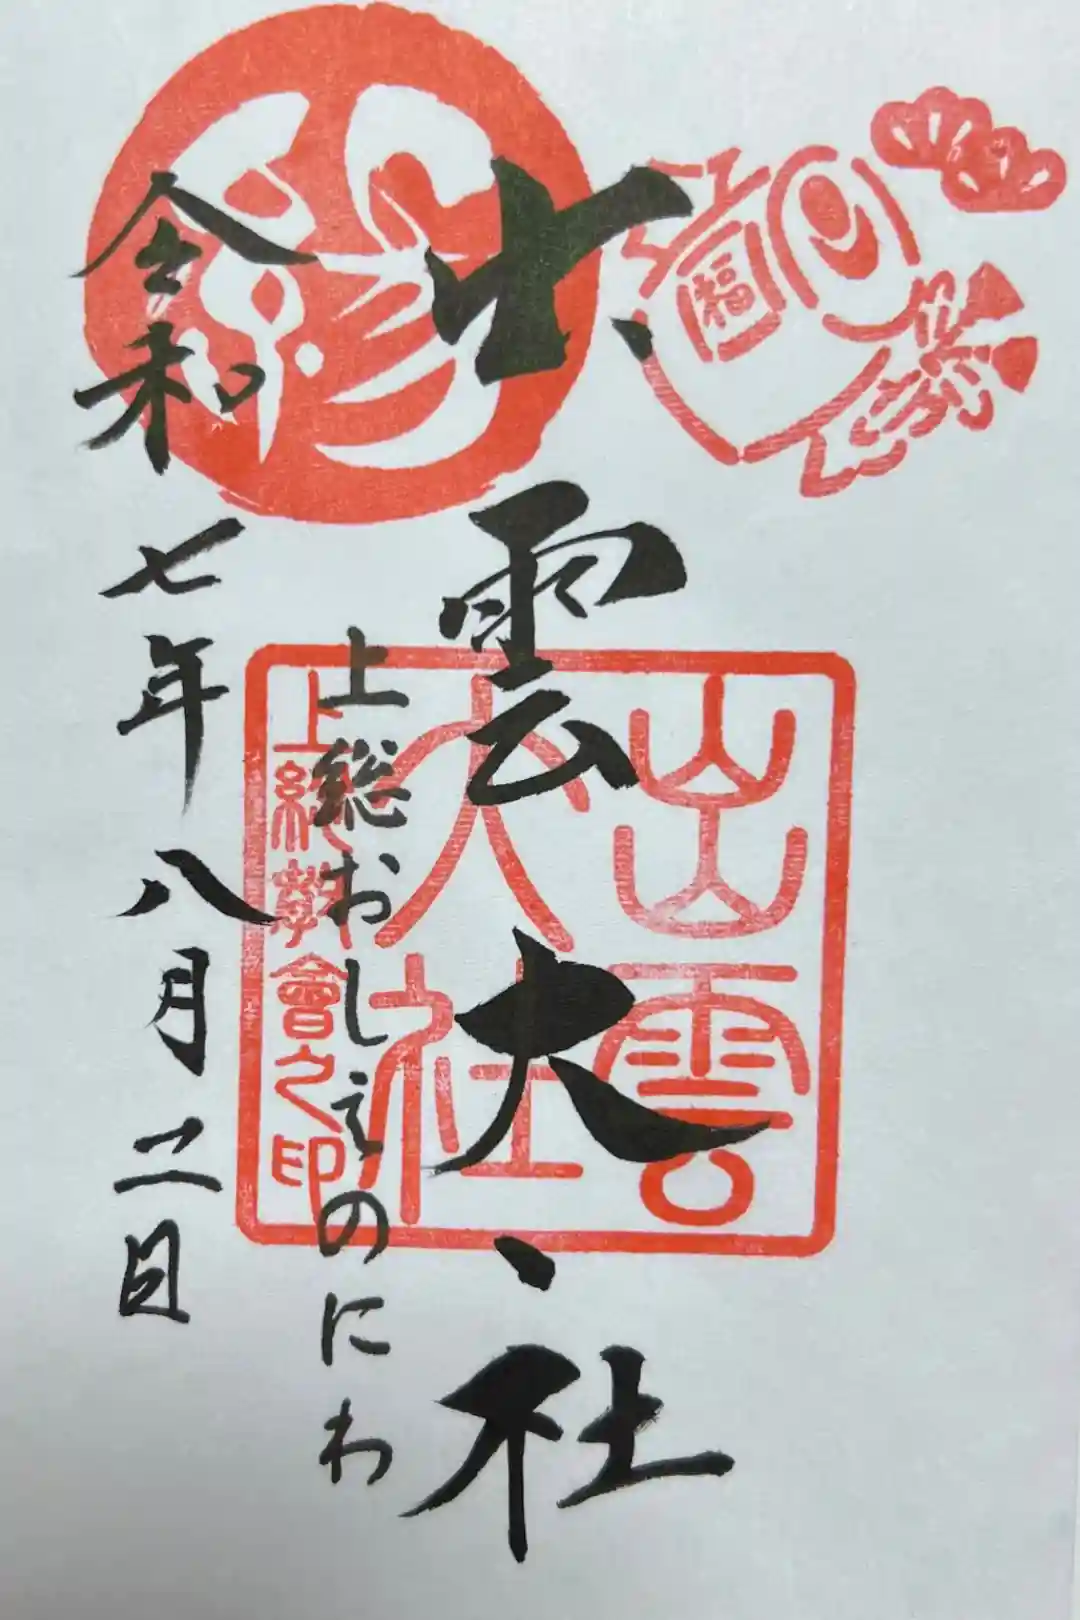 福
縁
出雲大社
出雲
大社
上総教會之印
上総おしえのにわ
令和七年八月二日